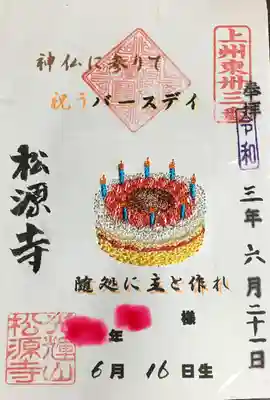 上州東州三
奉拝
令和
三年六月二十一日
神仏に参りて
祝うバースデイ
松源寺
随処に主と作れ
様
年
6月16日生
光輝山
松源寺